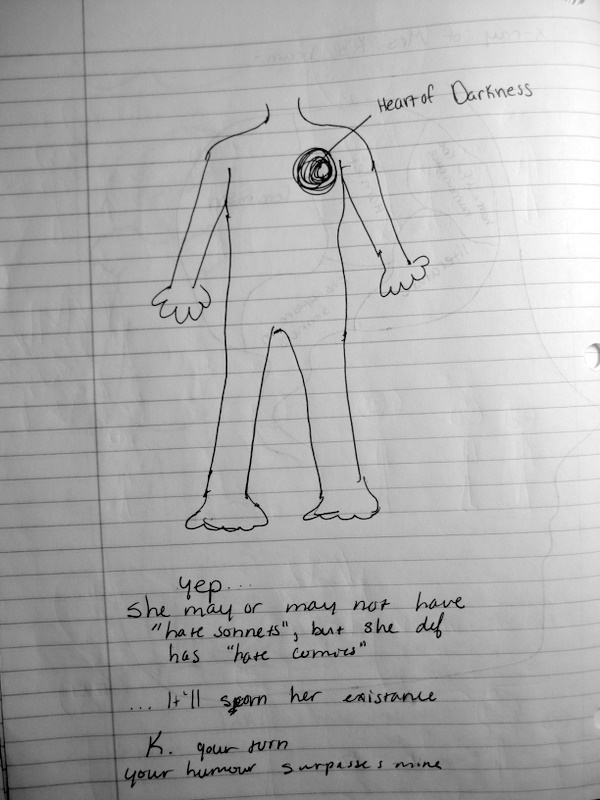 Heart of Darkness
yep...
She may or may not have
"hate sonnets", but she def
has "hate comics"
... It'll sporn her existance
K. your turn
your humour surpasses mine